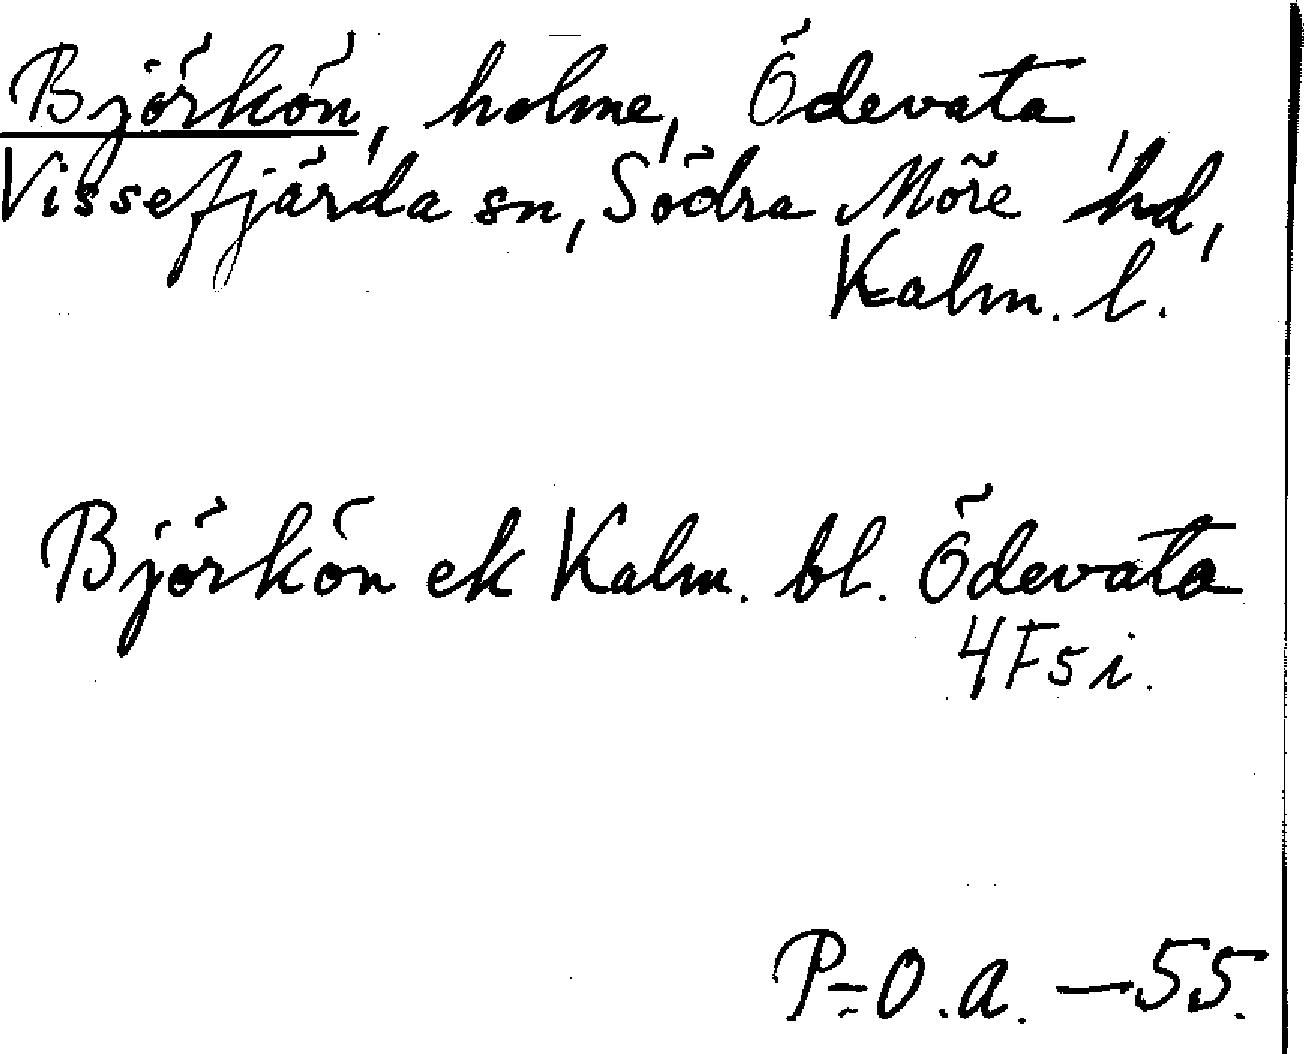 Björkön, holme, Ödevata,
Vissefjärda sn, Södra Möre hd,
Kalm. l.
Björkön ek Kalm. bl. Ödevata
4F5i.
P-O.a. —55.